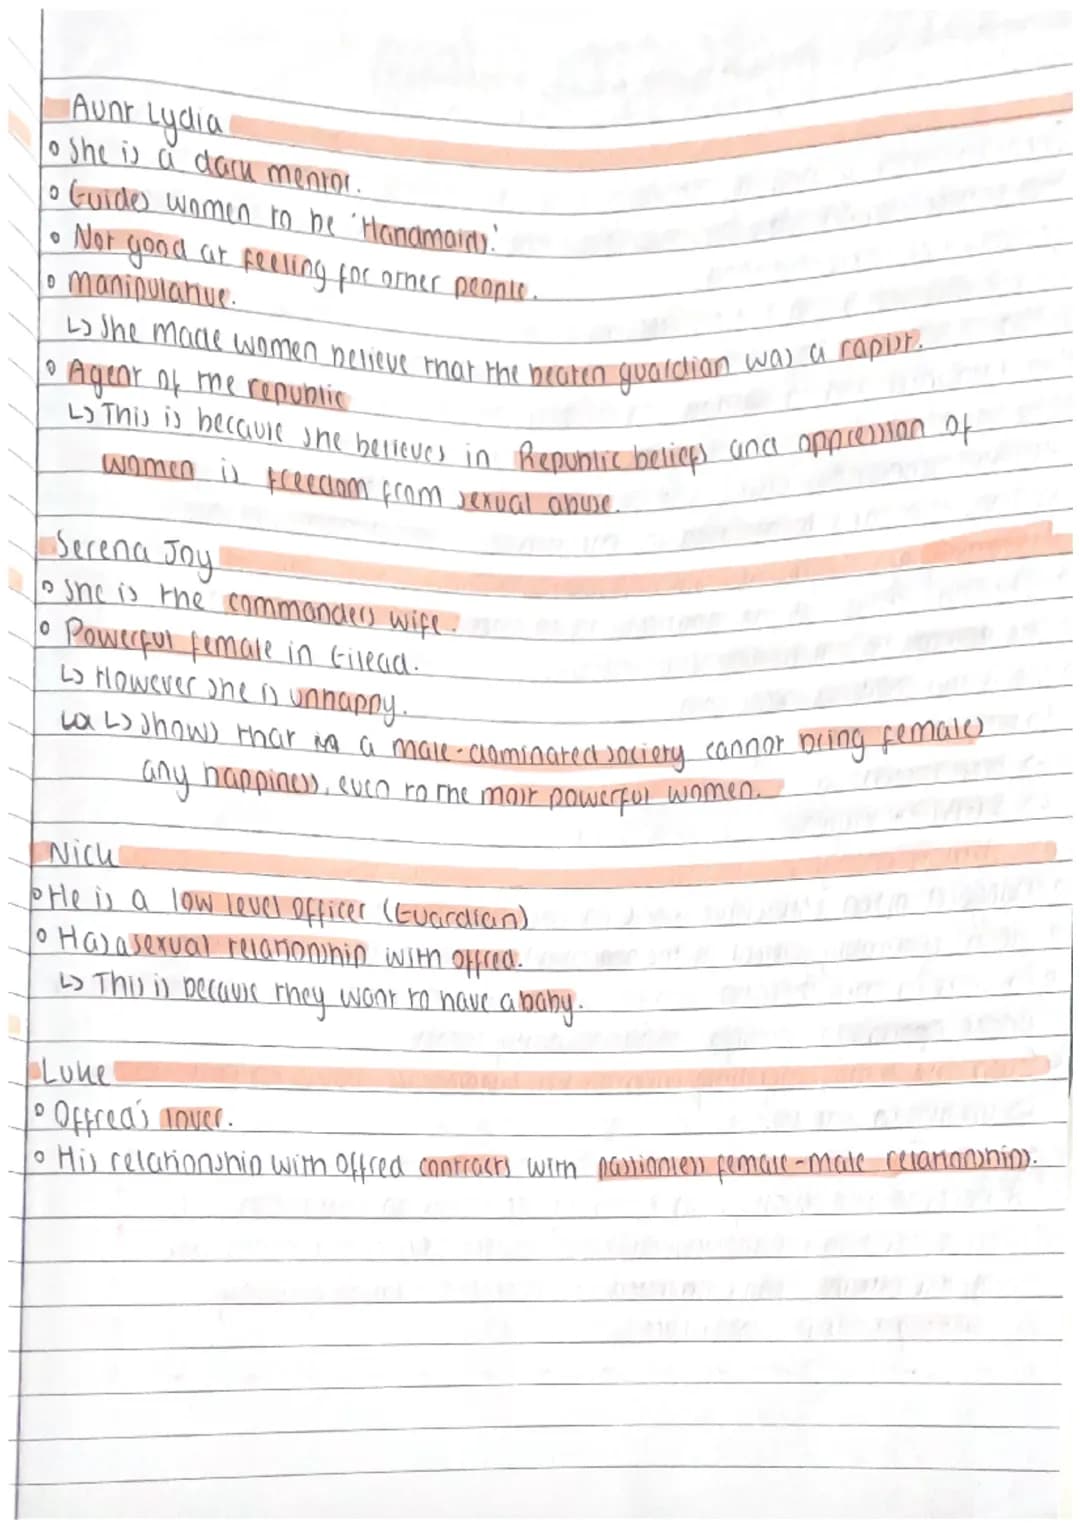 Aunt Lydia
o She is a dark mentor.
o Guides women to be 'Handmaids'.
o Not good at feeling for other people.
o Manipulative.
↳ She made women believe that the beaten guardian was a rapist.
o Agent of the republic
↳ This is because she believes in Republic beliefs and oppression of
women is freedom from sexual abuse.
Serena Joy
o She is the commanders wife.
o Powerful female in Gilead.
↳ However she is unhappy.
↳ shows that a male-dominated society cannot bring females
any happiness, even to the most powerful women.
Nick
o He is a low level officer (Guardian)
o Has a sexual relationship with offred.
↳ This is because they want to have a baby.
Luke
o Offred's lover.
o His relationship with Offred contracts with passionless female-male relationships.